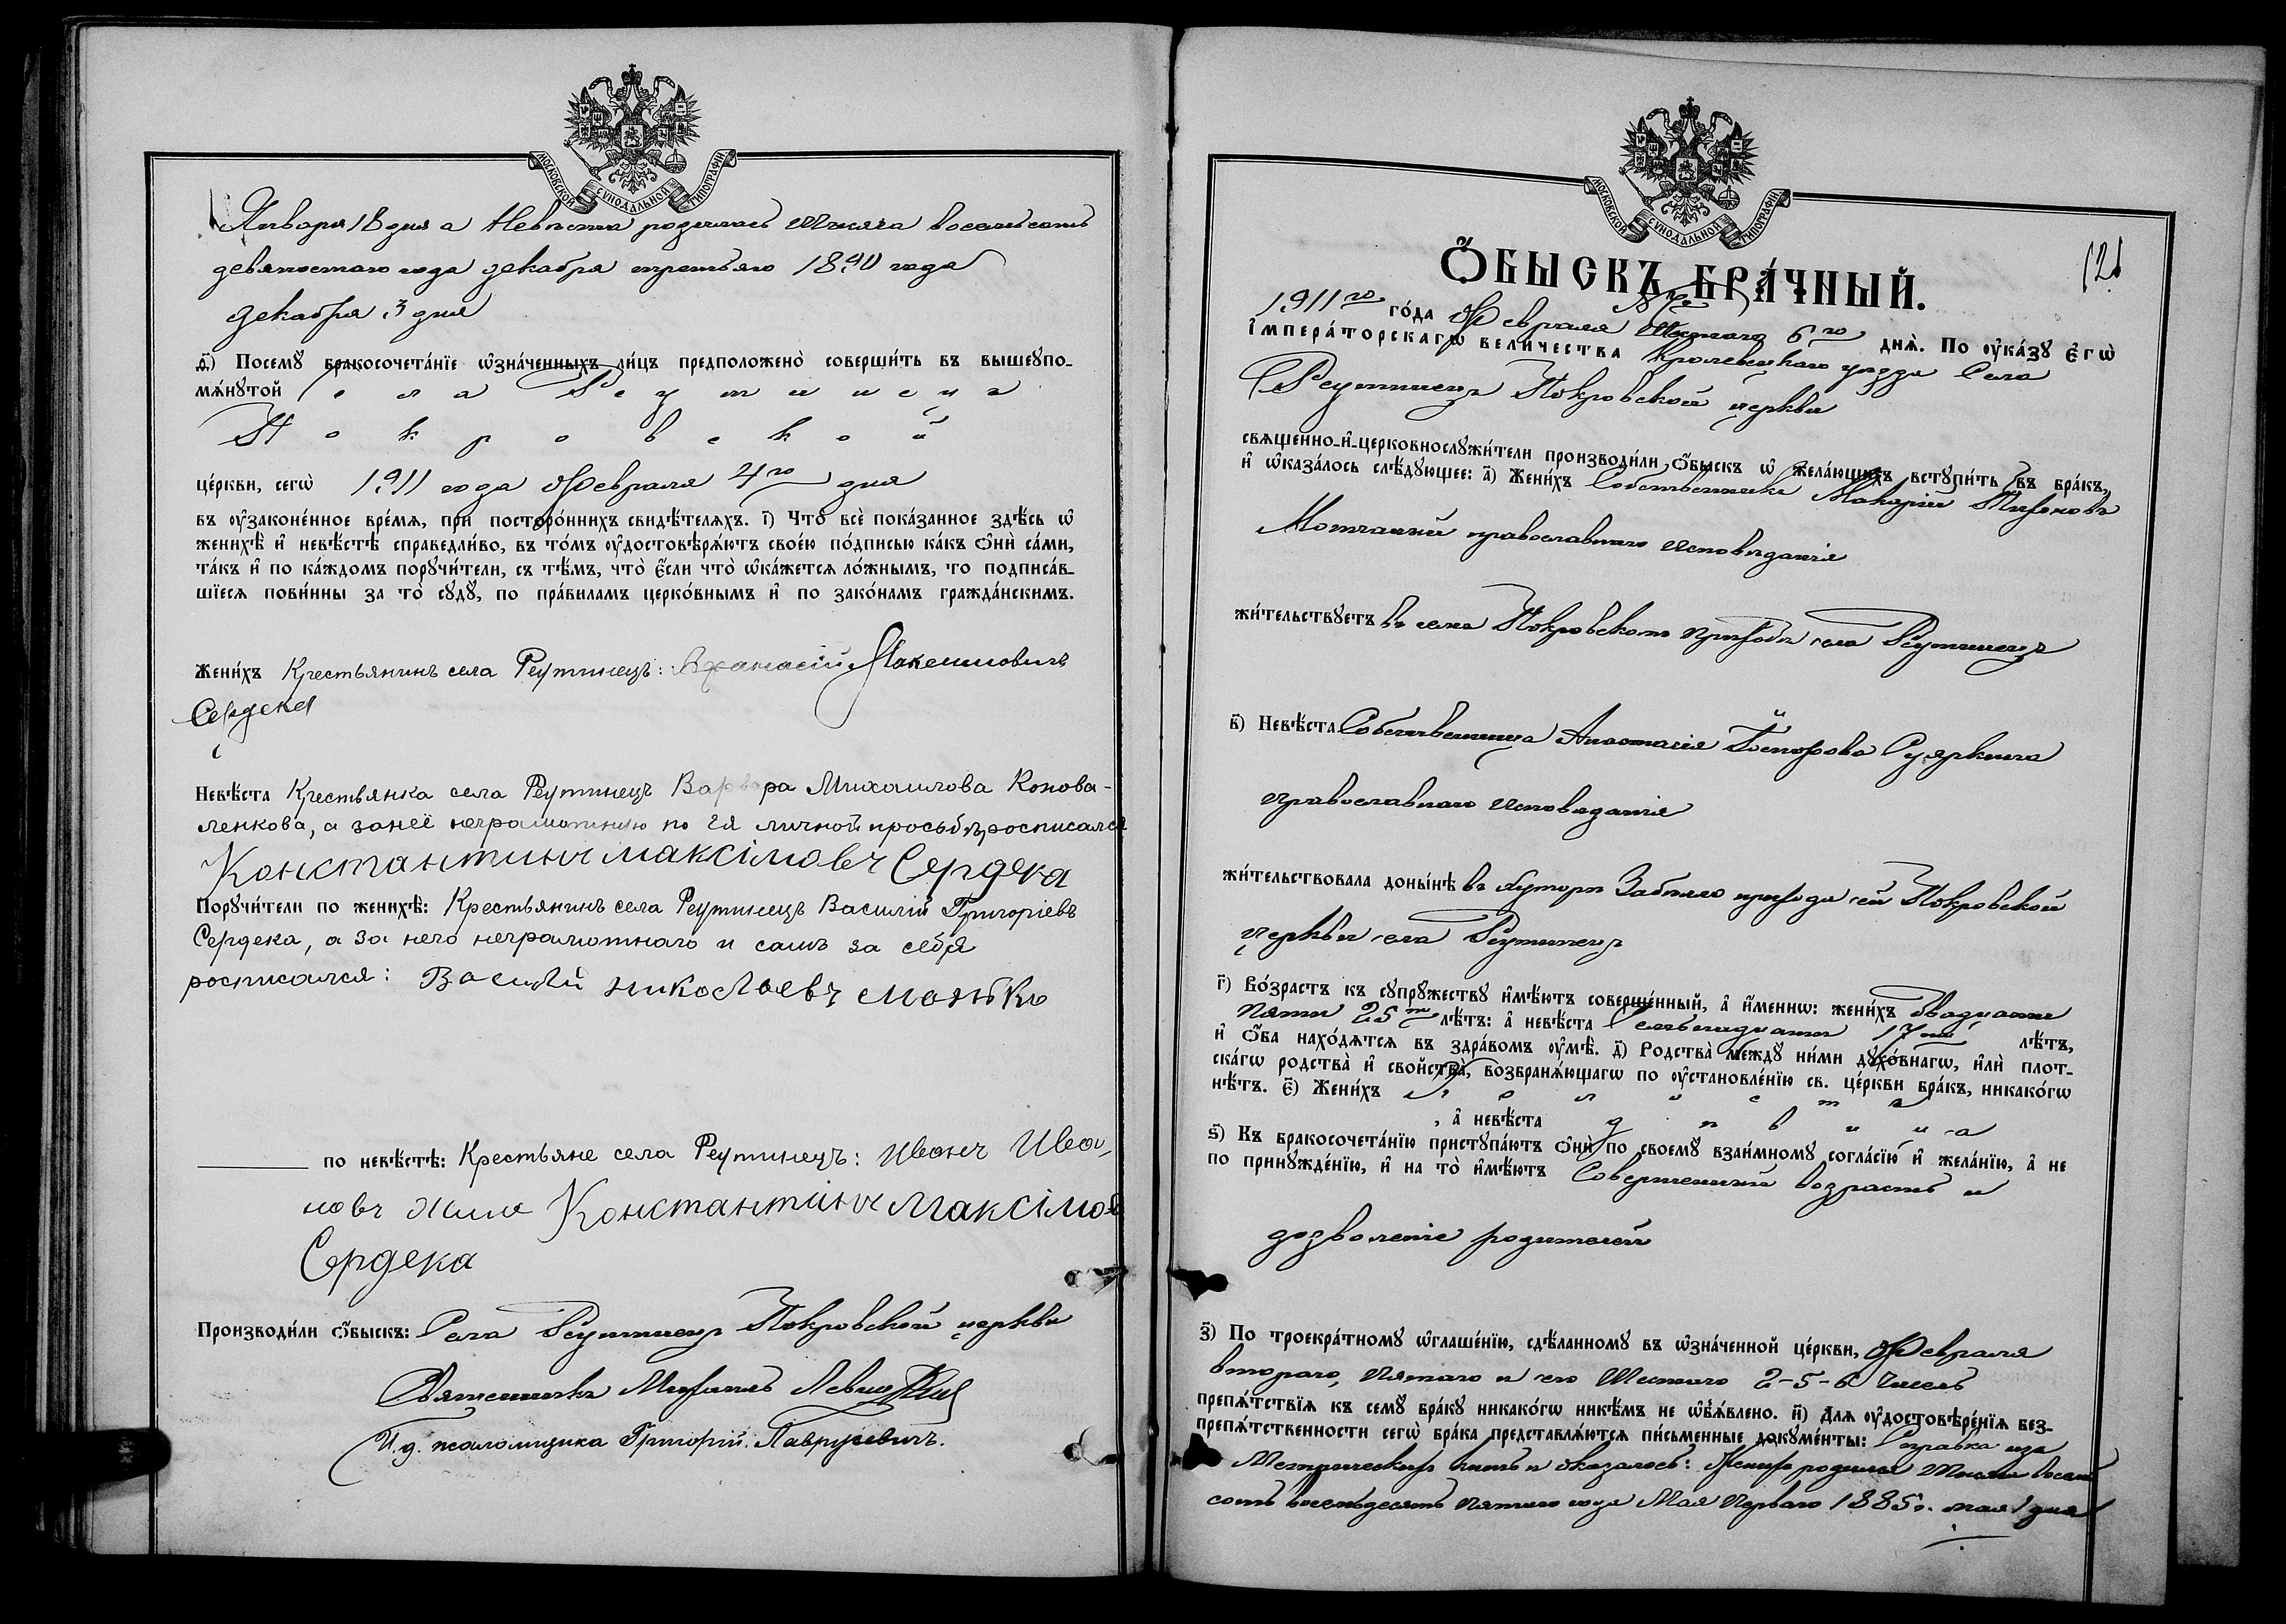 МОСКОВСКОЙ СУНОДАЛЬНОЙ ТИПОГРАФІИ
Января 18 дня а Невѣста родилась тысяча восемьсотъ
девяностаго года декабря третьяго 1890 года
декабря 3 дня
Ѳ҃) Посемꙋ бракосочета́нїе ѡ҆зна́ченныхъ ли́цъ предположено̀ соверши́ть въ вышеꙋпо-
мѧ́нꙋтой Села Реутинецъ
Покровской
це́ркви, сегѡ̀ 1911 года Февраля 4го дня
въ ᲂу҆законе́нное вре́мѧ, при посторо́ннихъ свидѣ́телѧхъ. і҃) Что̀ всѐ пока́занное здѣ́сь ѡ҆
женихѣ̀ и҆ невѣ́стѣ справедли́во, въ то́мъ ᲂу҆достовѣрѧ́ютъ свое́ю по́дписью ка́къ ѻ҆нѝ са́ми,
та́къ и҆ по ка́ждомъ порꙋчи́тели, съ тѣ́мъ, что̀ є҆́сли что̀ ѡ҆ка́жетсѧ ло́жнымъ, то подписа́в-
шїесѧ пови́нны за то̀ сꙋдꙋ̀, по пра́виламъ церко́внымъ и҆ по зако́намъ гражда́нскимъ.
Жени́хъ Крестьянинъ села Реутинецъ: Афанасій Максимовичъ
Сердека
Невѣ́ста Крестьянка села Реутинецъ Варвара Михаилова Конова-
ленкова, а за неё неграмотную по её личной просьбѣ, росписался
Константинъ максімовъ Сердека
Порꙋчи́тели по женихѣ̀: Крестьянинъ села Реутинецъ Василій Григоріевъ
Сердека, а за него неграмотнаго и самъ за себя
росписался: Василй николаевъ
по невѣ́стѣ: Крестьяне села Реутинецъ: Иванъ Ива,
новъ Константинъ Максімов
Сердека
Производи́ли ѻ҆́быскъ: Села Реутинецъ Покровской церкви
Священникъ Михаилъ Левицкій
И. д. псаломщика Григорій Лаврусевичъ.
МОСКОВСКОЙ СУНОДАЛЬНОЙ ТИПОГРАФІИ
121
Ѻ҆́БЫСКЪ БРА́ЧНЫЙ.
1911го го́да Февраля Шестаго 6го днѧ̀. По ᲂу҆ка́зꙋ є҆гѡ̀
і҆мпера́торскагѡ вели́чества Кролевецкаго уѣзда Села
Реутинецъ Покровской церкви
свѧщенно-и҆-церковнослꙋжи́тели производи́ли ѻ҆́быскъ ѡ҆ жела́ющихъ встꙋпи́ть въ бра́къ,
и҆ ѡ҆каза́лось слѣ́дꙋющее: а҃) Жени́хъ Собственникъ Макарій
православнаго исповѣданія
жи́тельствꙋетъ въ селѣ Покровскомъ приходѣ села Реутинецъ
в҃) Невѣ́ста Собственница Анастасія
православнаго исповѣданія
жи́тельствовала доны́нѣ въ хуторѣ прихода сей Покровской
церкви села Реутинецъ
г҃) Во́зрастъ къ сꙋпрꙋ́жествꙋ и҆мѣ́ютъ соверше́нный, а҆ и҆́меннѡ: жени́хъ двадцати
пяти 25ти лѣ́тъ: а҆ невѣ́ста Семьнадцати 17ти лѣ́тъ,
и҆ ѻ҆́ба нахо́дѧтсѧ въ здра́вомъ ᲂу҆мѣ̀. д҃) Родства̀ междꙋ ни́ми дꙋхо́внагѡ, и҆лѝ плот-
ска́гѡ родства̀ и҆ свойства̀, возбранѧ́ющагѡ по ᲂу҆становле́нїю св. це́ркви бра́къ, никако́гѡ
нѣ́тъ. є҃) Жени́хъ холостъ
, а҆ невѣ́ста дѣвица
ѕ҃) Къ бракосочета́нїю пристꙋпа́ютъ ѻ҆нѝ по своемꙋ̀ взаи́мномꙋ согла́сїю и҆ жела́нїю, а҆ не
по принꙋжде́нїю, и҆ на то̀ и҆мѣ́ютъ Совершенный возрастъ и
дозволеніе родителей
з҃) По троекра́тномꙋ ѡ҆глаше́нїю, сдѣ́ланномꙋ въ ѡ҆зна́ченной це́ркви, Февраля
втораго, пятаго и сего Шестаго 2-5-6 чиселъ
препѧ́тствїѧ къ семꙋ̀ бра́кꙋ никако́гѡ никѣ́мъ не ѡ҆б̾ѧ́влено. и҃) Длѧ ᲂу҆достовѣре́нїѧ без-
препѧ́тственности сегѡ̀ бра́ка представлѧ́ютсѧ пи́сьменные докꙋме́нты: Справка изъ
Метрическихъ книгъ и оказалось: Женихъ родился тысяча восемь
сотъ восемьдесятъ пятаго года Мая перваго 1885 г. мая 1 дня